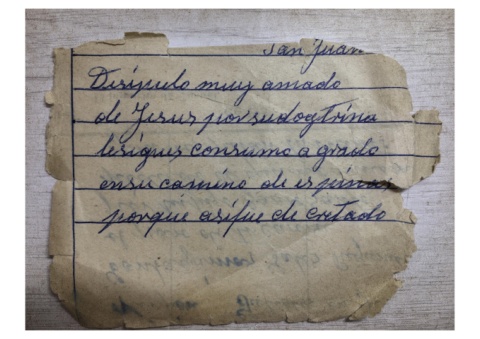 San Juan
Disípulo muy amado
de Jesus por sudogtrina
lesigues consumo agrado
ensu camino de espinas
porque asifue de cretado